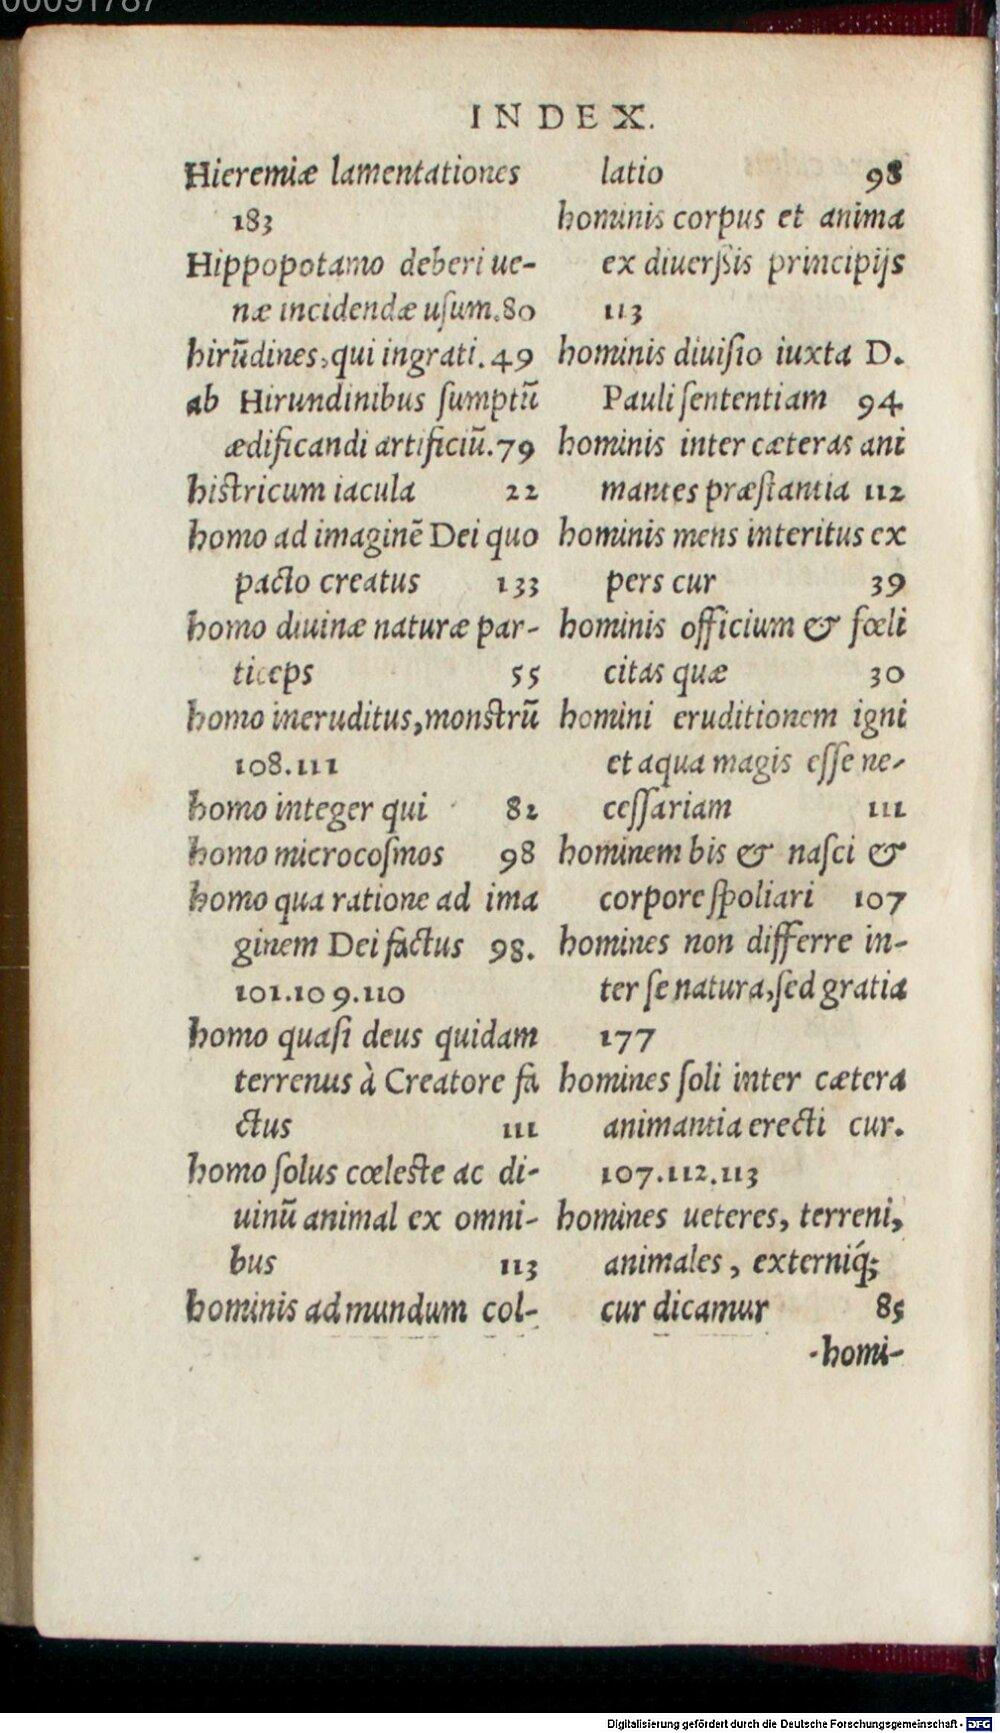 00091787
INDEX.
Hieremiæ lamentationes
183
Hippopotamo deberi ue-
næ incidendæ uſum.80
hirũdines, qui ingrati.49
ab Hirundinibus ſumptũ
ædificandi artificiũ.79
histricum iacula 22
homo ad imaginẽ Dei quo
pacto creatus 133
homo diuinæ naturæ par-
ticeps 55
homo ineruditus, monstrũ
108.111
homo integer qui 82
homo microcoſmos 98
homo qua ratione ad ima
ginem Dei factus 98.
101.109.110
homo quaſi deus quidam
terrenus à Creatore fa
ctus 111
homo ſolus cœleste ac di-
uinũ animal ex omni-
bus 113
hominis ad mundum col-
latio 98
hominis corpus et anima
ex diuerſis principijs
113
hominis diuiſio iuxta D.
Pauli ſententiam 94
hominis inter cæteras ani
mantes præſtantia 112
hominis mens interitus ex
pers cur 39
hominis officium & fœli
citas quæ 30
homini eruditionem igni
et aqua magis eſſe ne-
ceſſariam 111
hominem bis & naſci &
corpore ſpoliari 107
homines non differre in-
ter ſe natura, ſed gratia
177
homines ſoli inter cætera
animantia erecti cur.
107.112.113
homines ueteres, terreni,
animales, externiq́;
cur dicamur 85
homi-
Digitalisierung gefördert durch die Deutsche Forschungsgemeinschaft - DFG